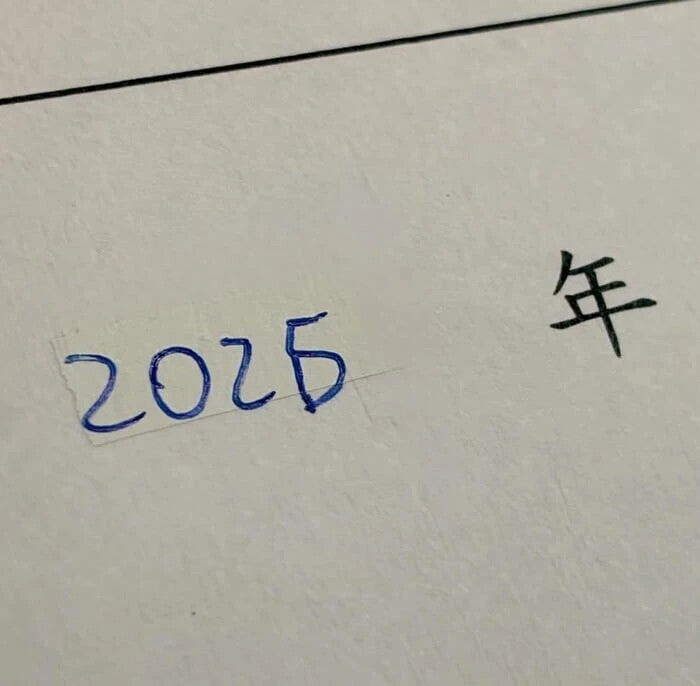 2025 年